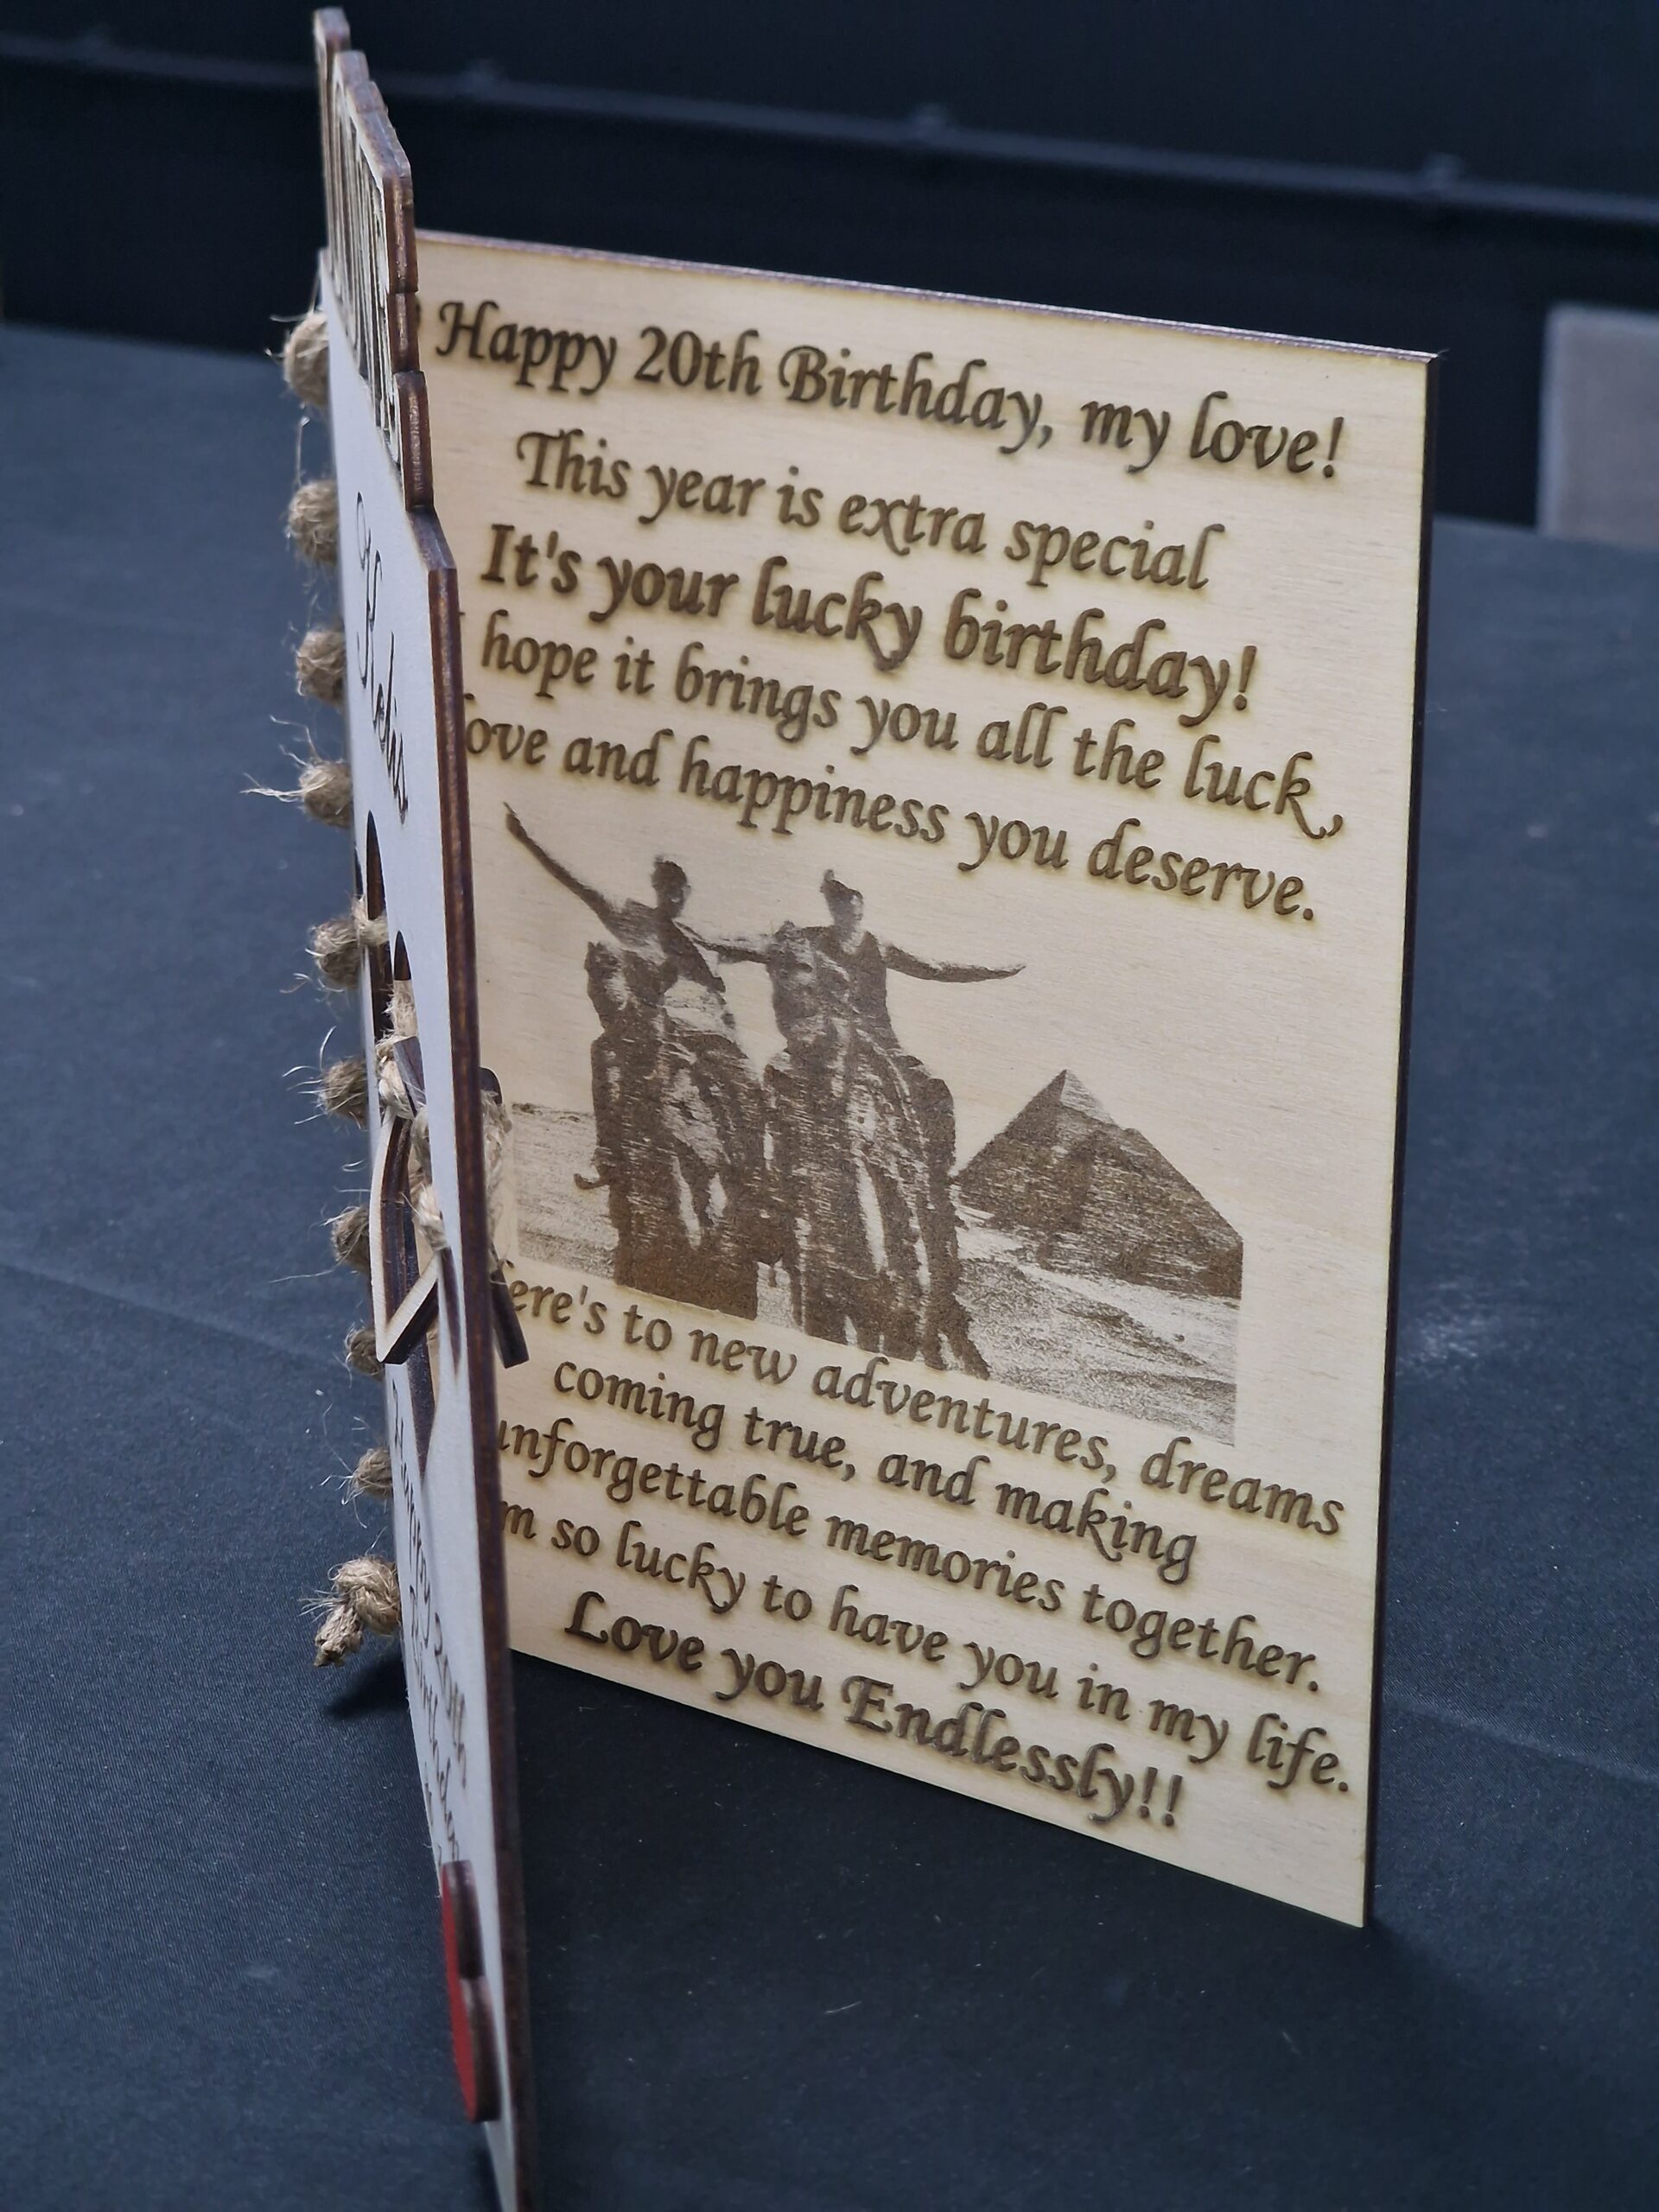 Happy 20th Birthday, my love!
This year is extra special
It's your lucky birthday!
I hope it brings you all the luck,
love and happiness you deserve.
Here's to new adventures, dreams
coming true, and making
unforgettable memories together.
so lucky to have you in my life.
Love you Endlessly!!
Happy 20th
Birthday